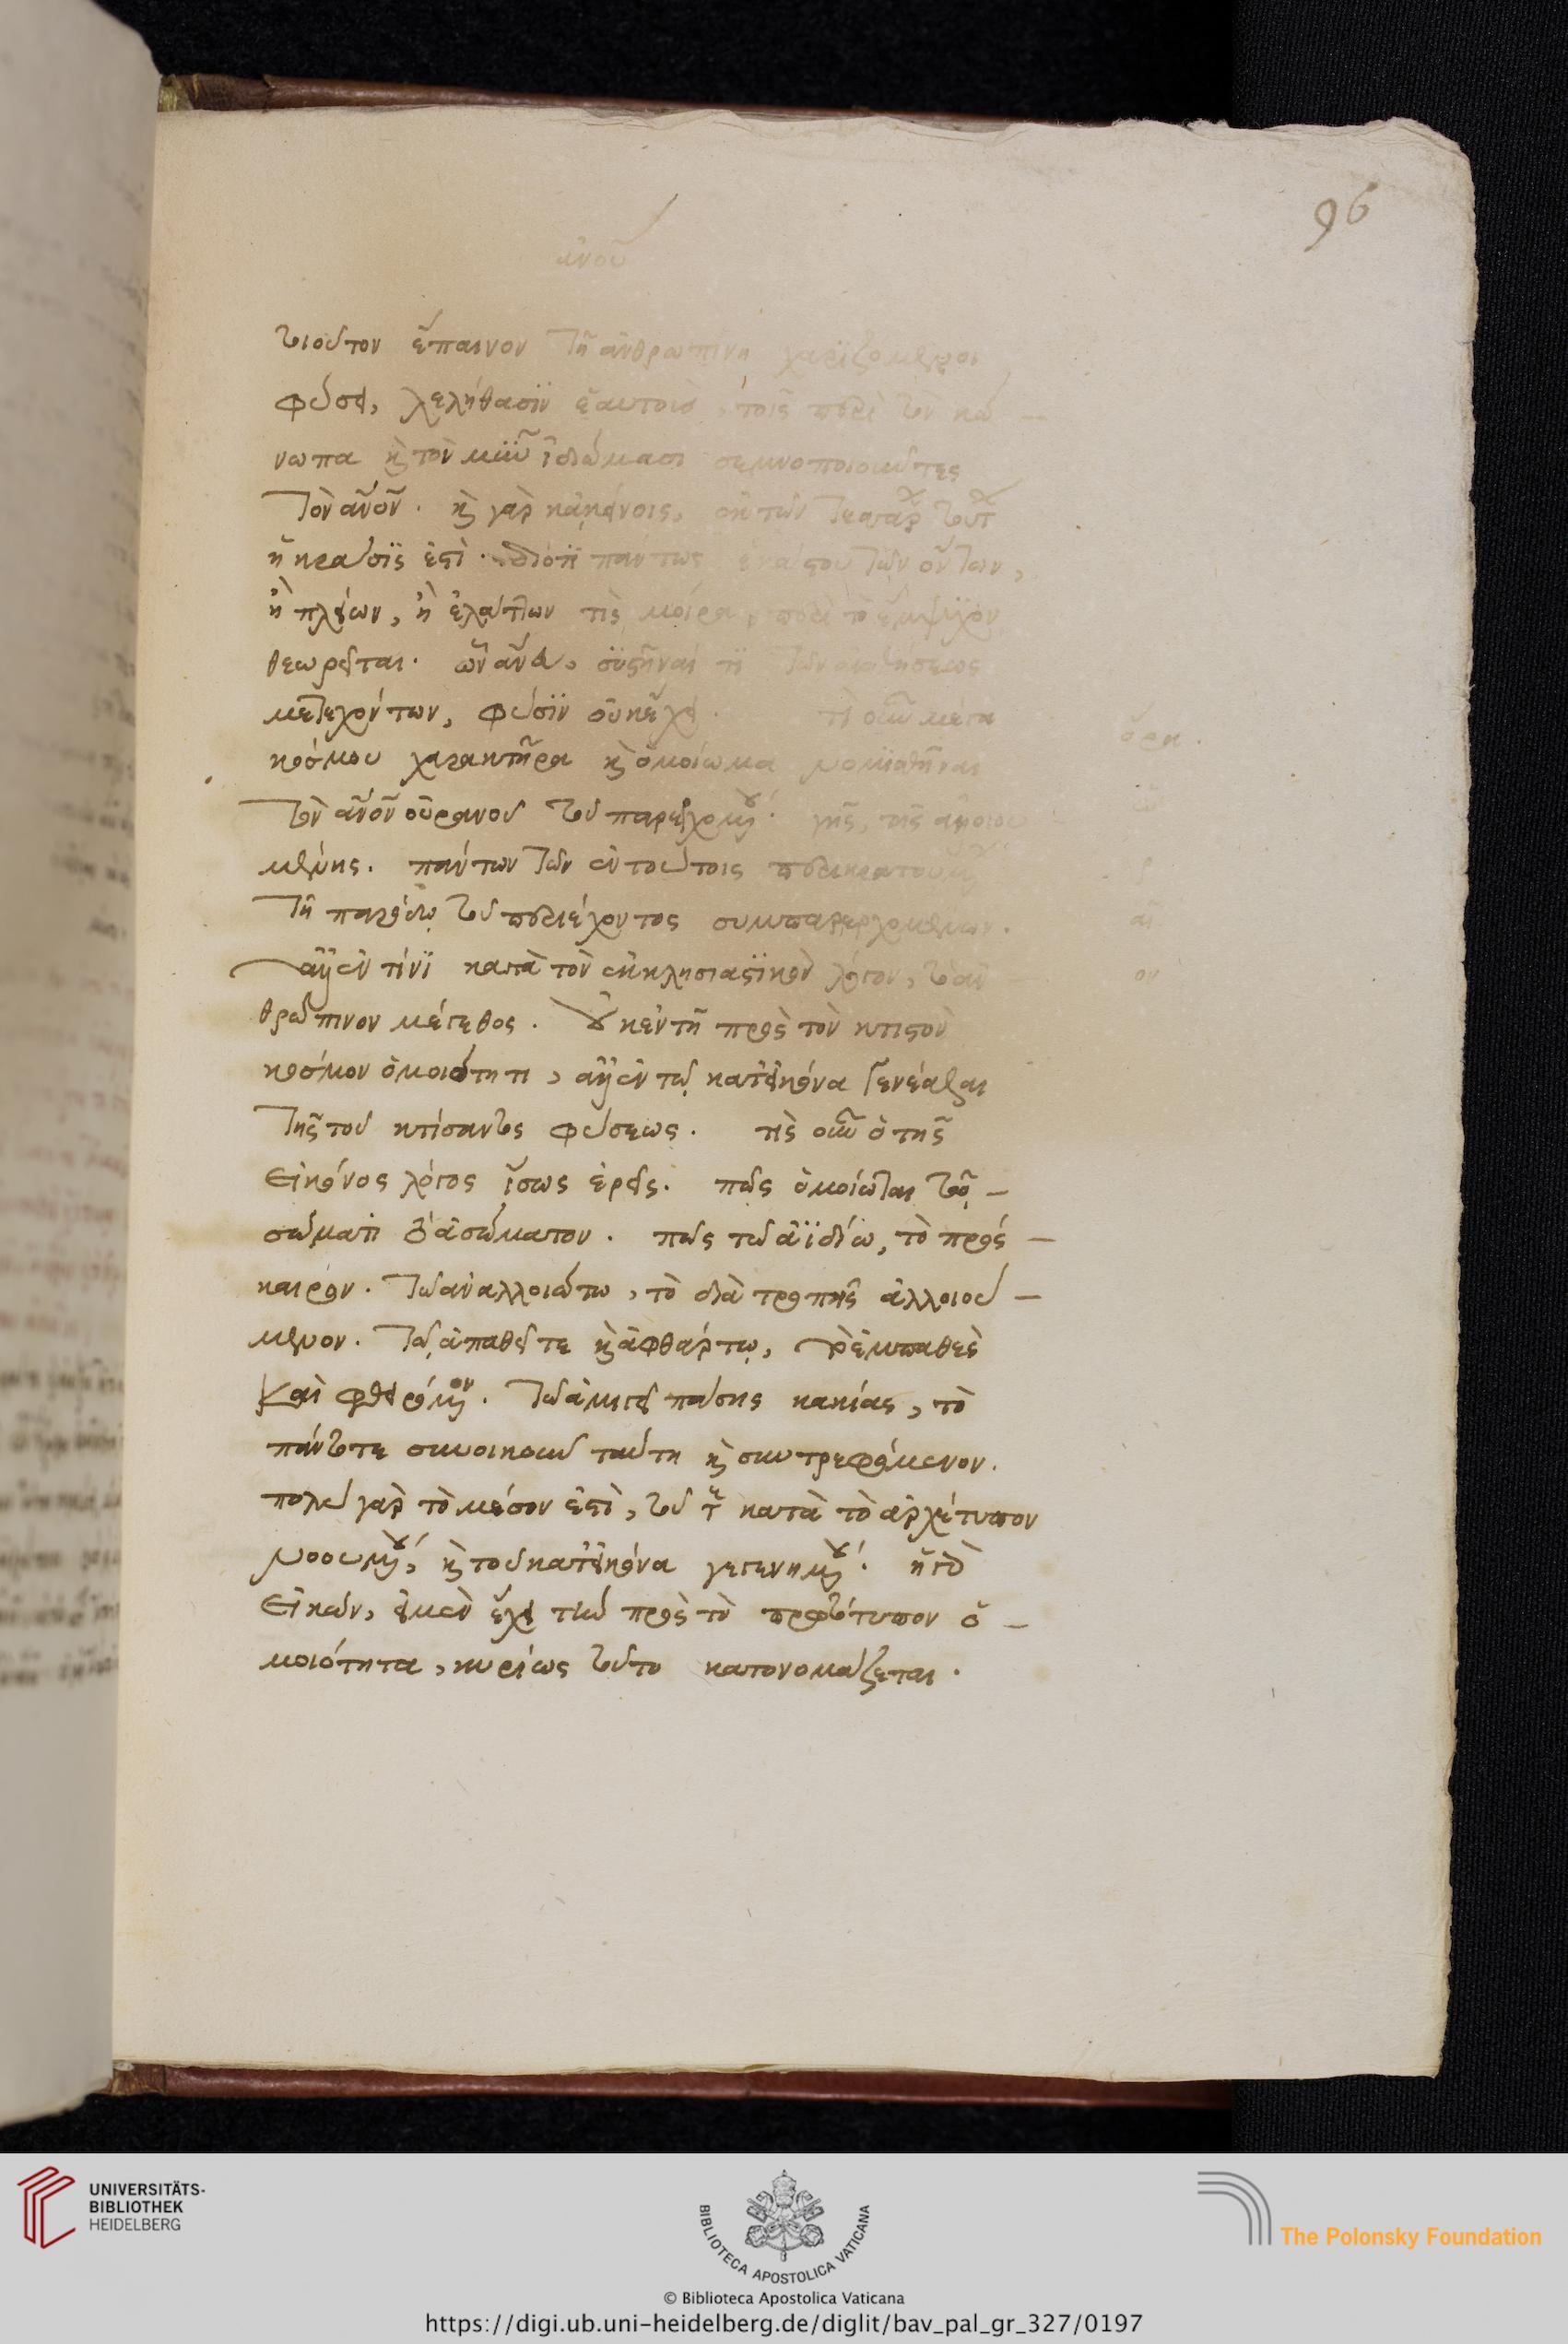 96
ἀνοῦ
τοιοῦτον ἔπαινον τῆ ἀνθρωπίνη χαριζόμενοι
φύσει, λεληθασϊν ἑαυτοὶς, τοῖς περὶ τὸν κώ –
νωπα κ̀ τὸν μϋῦ ἰδιώμασι σεμνοποιοῦντες
τὸν ἄνον̅. κ̀ γὰρ κἀκείνοις, ἐκ τῶν τεσσάρ τούτ
ἡ κρᾶσϊς ἐστὶ. διότϊ πάντως ἑκάστου τῶν ὄντων,
ἢ πλείων, ἢ ἐλάττων τὶς μοίρα, περὶ τὸ ἔμψϋχον
θεωρεῖται. ὧν ἄνευ, συστῆναί τϊ τῶν αἰσθήσεως
μετεχόντων, φύσϊν οὐκ ἔχει. τί οὖν μέγα
κόσμου χαρακτῆρα κ̀ ὁμοίωμα νομισθῆναι
τὸν ἄνον̅ οὐρανοῦ τοῦ παρερχομένου. γῆς, τῆς ἀλλοιου
μένης. πάντων τῶν ἐν τούτοις περικρατουμένων
τῆ παρόδῳ τοῦ περιέχοντος συμπαρερχομένων.
ἀλλ' ἐν τίνϊ κατὰ τὸν ἐκκλησιαστϊκὸν λόγον, τὸ ἀν
θρώπινον μέγεθος. οὐκ ἐν τῆ πρὸς τὸν κτιστὸν
κόσμον ὁμοιότητι, ἀλλ' ἐν τῷ κατ' εἰκόνα γενέσθαι
τῆς τοῦ κτίσαντος φύσεως. τὶς οὖν ὁ τῆς
εἰκόνος λόγος ἴσως ἐρεῖς. πῶς ὁμοίωται τῷ –
σώματι τὸ ἀσώματον. πῶς τῶ ἀϊδίω, τὸ πρός –
καιρον. τῶ ἀναλλοιώτω, τὸ διὰ τροπῆς ἀλλοιού –
μενον. τῷ ἀπαθεῖ τε κ̀ ἀφθάρτῳ, τὸ ἐμπαθὲς
καὶ φθειρόμενον. τῶ ἀμιγεῖ πάσης κακίας, τὸ
πάντοτε συνοικοῦν ταύτη κ̀ συντρεφόμενον.
πολὺ γὰρ τὸ μέσον ἐστὶ, τοῦ τε κατὰ τὸ ἀρχέτυπον
νοουμένου, κ̀ τοῦ κατ' εἰκόνα γεγενημένου. ἡ γὰρ
εἰκὼν, εἰ μὲν ἔχει τὴν πρὸς τὸ πρωτότυπον ὁ –
μοιότητα, κυρίως τοῦτο κατονομάζεται.
ὅρα.
UNIVERSITÄTS-
BIBLIOTHEK
HEIDELBERG
BIBLIOTECA APOSTOLICA VATICANA
The Polonsky Foundation
© Biblioteca Apostolica Vaticana
https://digi.ub.uni-heidelberg.de/diglit/bav_pal_gr_327/0197